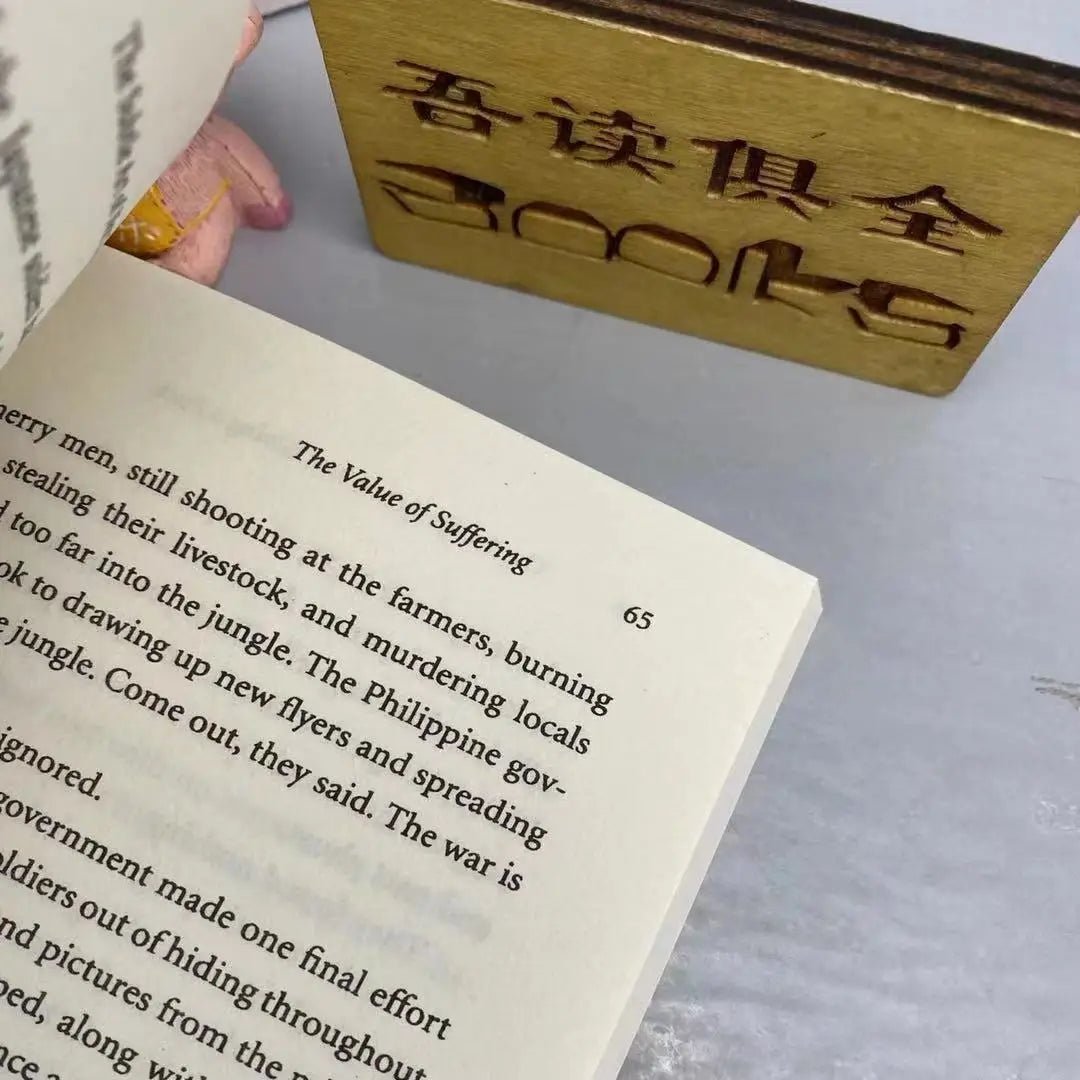 吾读俱全
Books
The Value of Suffering
65
merry men, still shooting at the farmers, burning
stealing their livestock, and murdering locals
too far into the jungle. The Philippine gov-
to drawing up new flyers and spreading
jungle. Come out, they said. The war is
ignored.
government made one final effort
out of hiding throughout
pictures from the
along